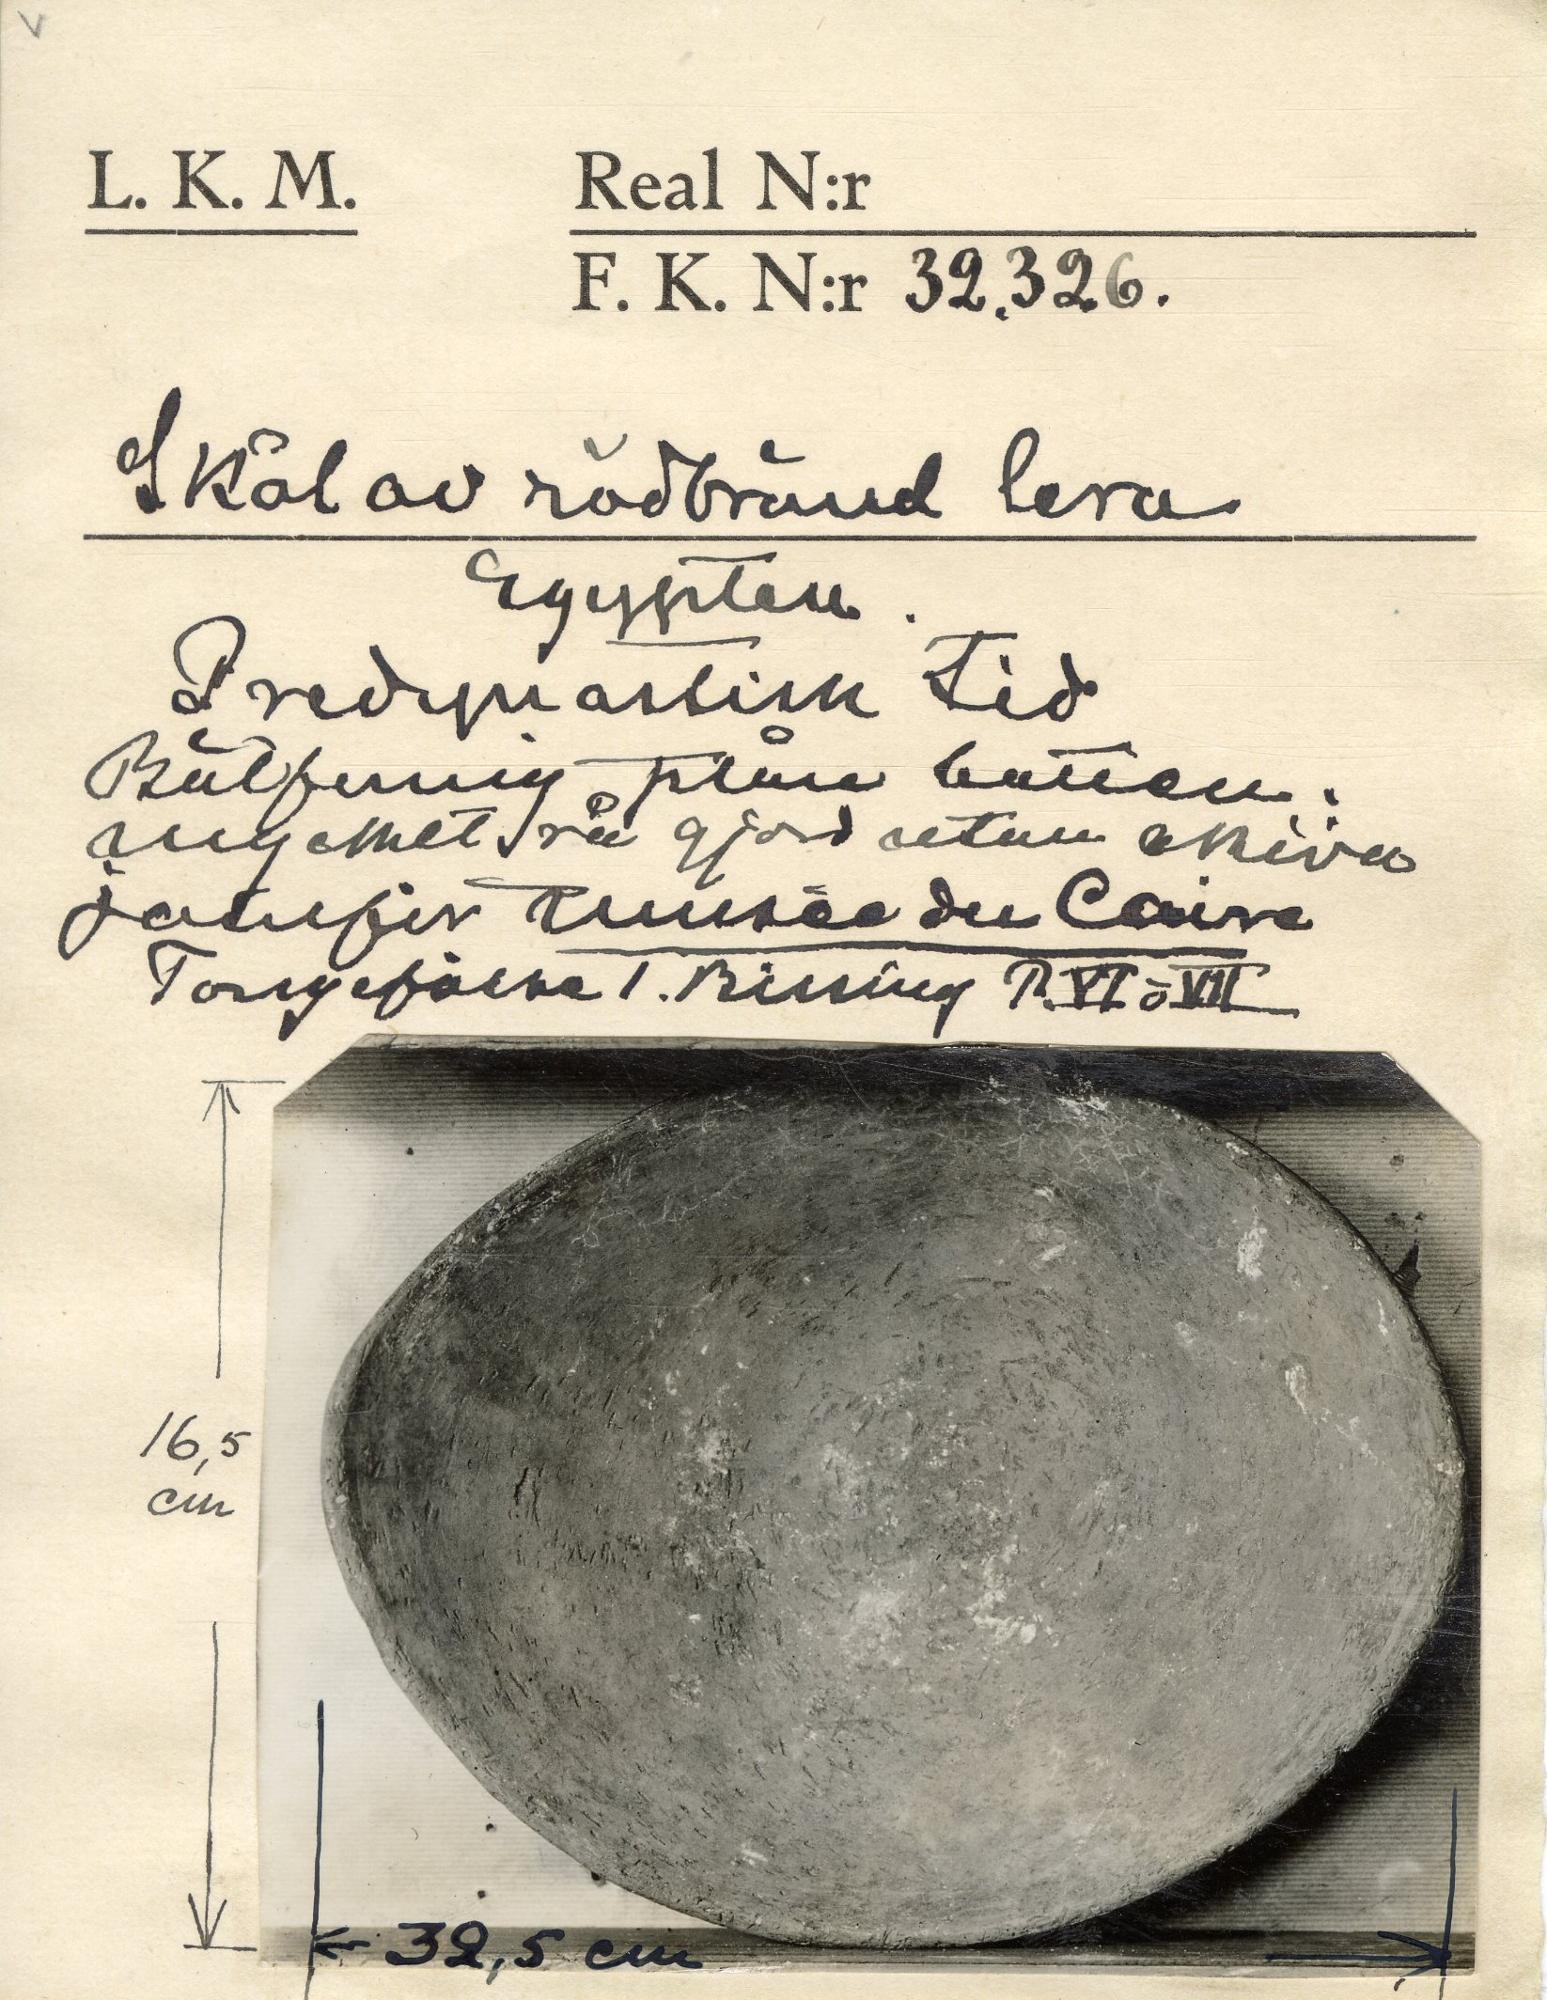 L. K. M.
Real N:r
F. K. N:r 32.326.
Skål av rödbränd lera
Egypten.
Predynastisk tid
Båtformig plan botten.
mycket rå gjord utan skiva
jämför Musée du Caire
Tongefässe I. Bissing P. VI o VII
16,5
cm
32,5 cm